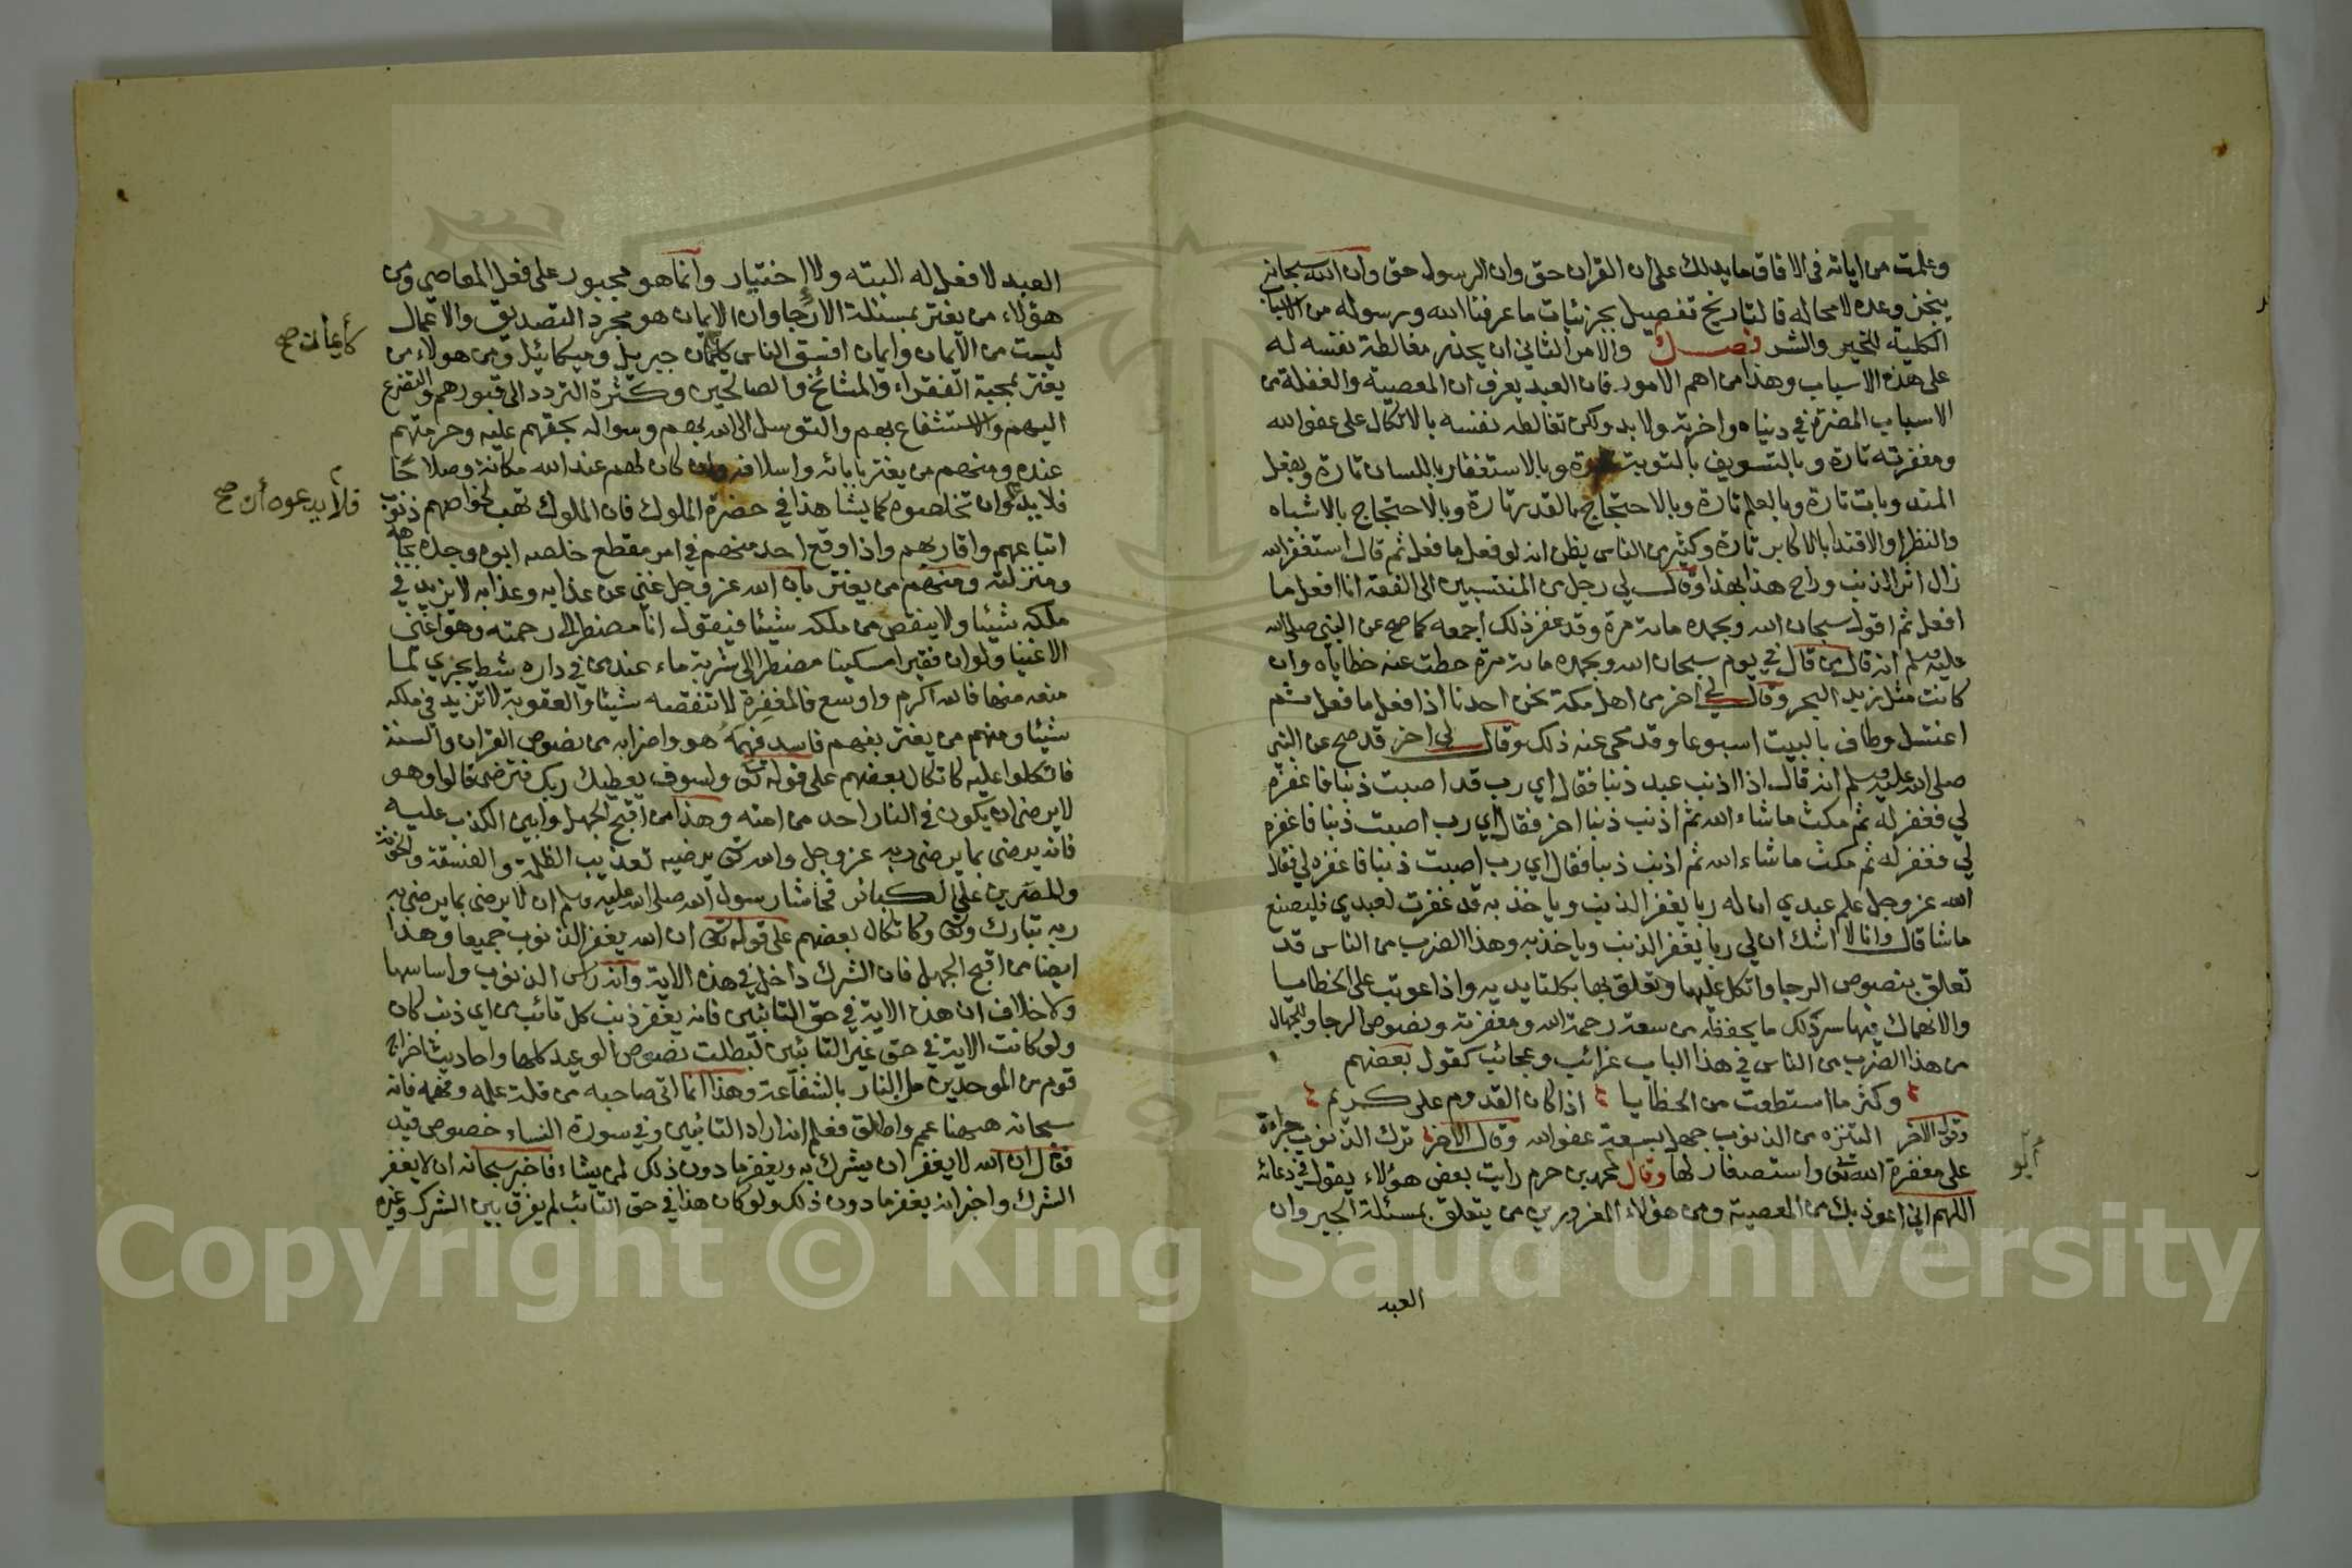 وعلمت من اياته في الافاق ما يدلك على ان القران حق وان الرسول حق وان الله سبحانه
ينجز وعده لا محاله فالتاريخ تفصيل بجزئيات ما عرفنا الله ورسوله من الاسباب
الكلية للخير والشر فصل والامر الثاني ان يحذر مغالطة نفسه له
على هذه الاسباب وهذا من اهم الامور فان العبد يعرف ان المعصية والغفلة من
الاسباب المضرة في دنياه واخرته ولا بد ولكن تغالطه نفسه بالاتكال على عفو الله
ومغفرته تارة وبالتسويف بالتوبة تارة وبالاستغفار باللسان تارة وبفعل
المندوبات تارة وبالعلم تارة وبالاحتجاج بالقدر تارة وبالاحتجاج بالاشباه
والنظرا والاقتدا بالاكابر تارة وكثير من الناس يظن انه لو فعل ما فعل ثم قال استغفر الله
زال اثر الذنب وراح هذا بهذا وقال لي رجل من المنتسبين الى الفقه انا افعل ما
افعل ثم اقول سبحان الله وبحمده مائة مرة وقد غفر ذلك اجمعه كما صح عن النبي صلى الله
عليه وسلم انه قال من قال في يوم سبحان الله وبحمده مائة مرة حطت عنه خطاياه وان
كانت مثل زبد البحر وقال لي اخر من اهل مكة نحن احدنا اذا فعل ما فعل ثم
اغتسل وطاف بالبيت اسبوعا وقد محي عنه ذلك وقال لي اخر قد صح عن النبي
صلى الله عليه وسلم انه قال اذا اذنب عبد ذنبا فقال اي رب قد اصبت ذنبا فاغفره
لي فغفر له ثم مكث ما شاء الله ثم اذنب ذنبا اخر فقال اي رب اصبت ذنبا فاغفره
لي فغفر له ثم مكث ما شاء الله ثم اذنب ذنبا فقال اي رب اصبت ذنبا فاغفره لي فقال
الله عز وجل علم عبدي ان له ربا يغفر الذنب وياخذ به قد غفرت لعبدي فليصنع
ما شا قال وانا لا اشك ان لي ربا يغفر الذنب وياخذ به وهذا الضرب من الناس قد
تعلق بنصوص الرجا واتكل عليها وتعلق بها بكلتا يديه واذا عوتب على الخطايا
والانهماك فيها سرد لك ما يحفظه من سعة رحمة الله ومغفرته ونصوص الرجا وللجهال
من هذا الضرب من الناس في هذا الباب غرائب وعجائب كقول بعضهم
وكثر ما استطعت من الخطايا اذا كان القدوم على كريم
وقول الاخر التنزه من الذنوب جهل بسعة عفو الله وقال الاخر ترك الذنوب جراءة
على مغفرة الله تعالى واستصغار لها وقال محمد بن حزم رايت بعض هؤلاء يقول في دعائه
اللهم اني اعوذ بك من المعصية ومن هؤلاء المغرورين من يتعلق بمسئلة الجبر وان
العبد
أبو
العبد لا فعل له البته ولا اختيار وانما هو مجبور على فعل المعاصي ومن
هؤلاء من يغتر بمسئلة الارجا وان الايمان هو مجرد التصديق والاعمال
ليست من الايمان وايمان افسق الناس كايمان جبريل وميكائيل ومن هولاء من
يغتر بمحبة الفقراء والمشائخ والصالحين وكثرة التردد الى قبورهم والتضرع
اليهم والاستشفاع بهم والتوسل الى الله بهم وسواله بحقهم عليه وحرمتهم
عنده ومنهم من يغتر بابائه واسلافه وان كان لهم عند الله مكانة وصلاحا
فلا يدعوه ان تخلصوه كما يشاهد في حضرة الملوك فان الملوك تهب لخواصهم ذنوب
اتباعهم واقاربهم واذا وقع احد منهم في امر مقطع خلصه ابوه وجده بجاهه
ومنزلته ومنهم من يغتر بان الله عز وجل غني عن عذابه وعذابه لا يزيد في
ملكه شيئا ولا ينقص من ملكه شيئا فيقول انا مضطر الى رحمته وهو اغنى
الاغنيا ولو ان فقيرا مسكينا مضطرا الى شربة ماء عند من في داره شط يجري لما
منعه منها فالله اكرم واوسع فالمغفرة لا تنقصه شيئا والعقوبة لا تزيد في ملكه
شيئا ومنهم من يغتر بفهم فاسد فهمه هو واضرابه من نصوص القران والسنة
فاتكلوا عليه كاتكال بعضهم على قوله تعالى ولسوف يعطيك ربك فترضى قالوا وهو
لا يرضى ان يكون في النار احد من امته وهذا من اقبح الجهل وابين الكذب عليه
فانه يرضى بما يرضى ربه عز وجل والله تعالى يرضيه تعذيب الظلمة والفسقة والخونة
والمصرين على الكبائر فحاشا رسول الله صلى الله عليه وسلم ان لا يرضى بما يرضى به
ربه تبارك وتعالى وكاتكال بعضهم على قوله تعالى ان الله يغفر الذنوب جميعا وهذا
ايضا من اقبح الجهل فان الشرك داخل في هذه الاية وانه راس الذنوب واساسها
ولا خلاف ان هذه الاية في حق التائبين فانه يغفر ذنب كل تائب من اي ذنب كان
ولو كانت الاية في حق غير التائبين لبطلت نصوص الوعيد كلها واحاديث اخراج
قوم من الموحدين من النار بالشفاعة وهذا انما اتى صاحبه من قلة علمه وفهمه فانه
سبحانه ههنا عمم واطلق فعلم انه اراد التائبين وفي سورة النساء خصوص قيد
فقال ان الله لا يغفر ان يشرك به ويغفر ما دون ذلك لمن يشاء فاخبر سبحانه ان لا يغفر
الشرك واخبر انه يغفر ما دون ذلك ولو كان هذا في حق التائب لم يفرق بين الشرك وغيره
كأيمان صح
فلا يدعوه أن صح
Copyright © King Saud University